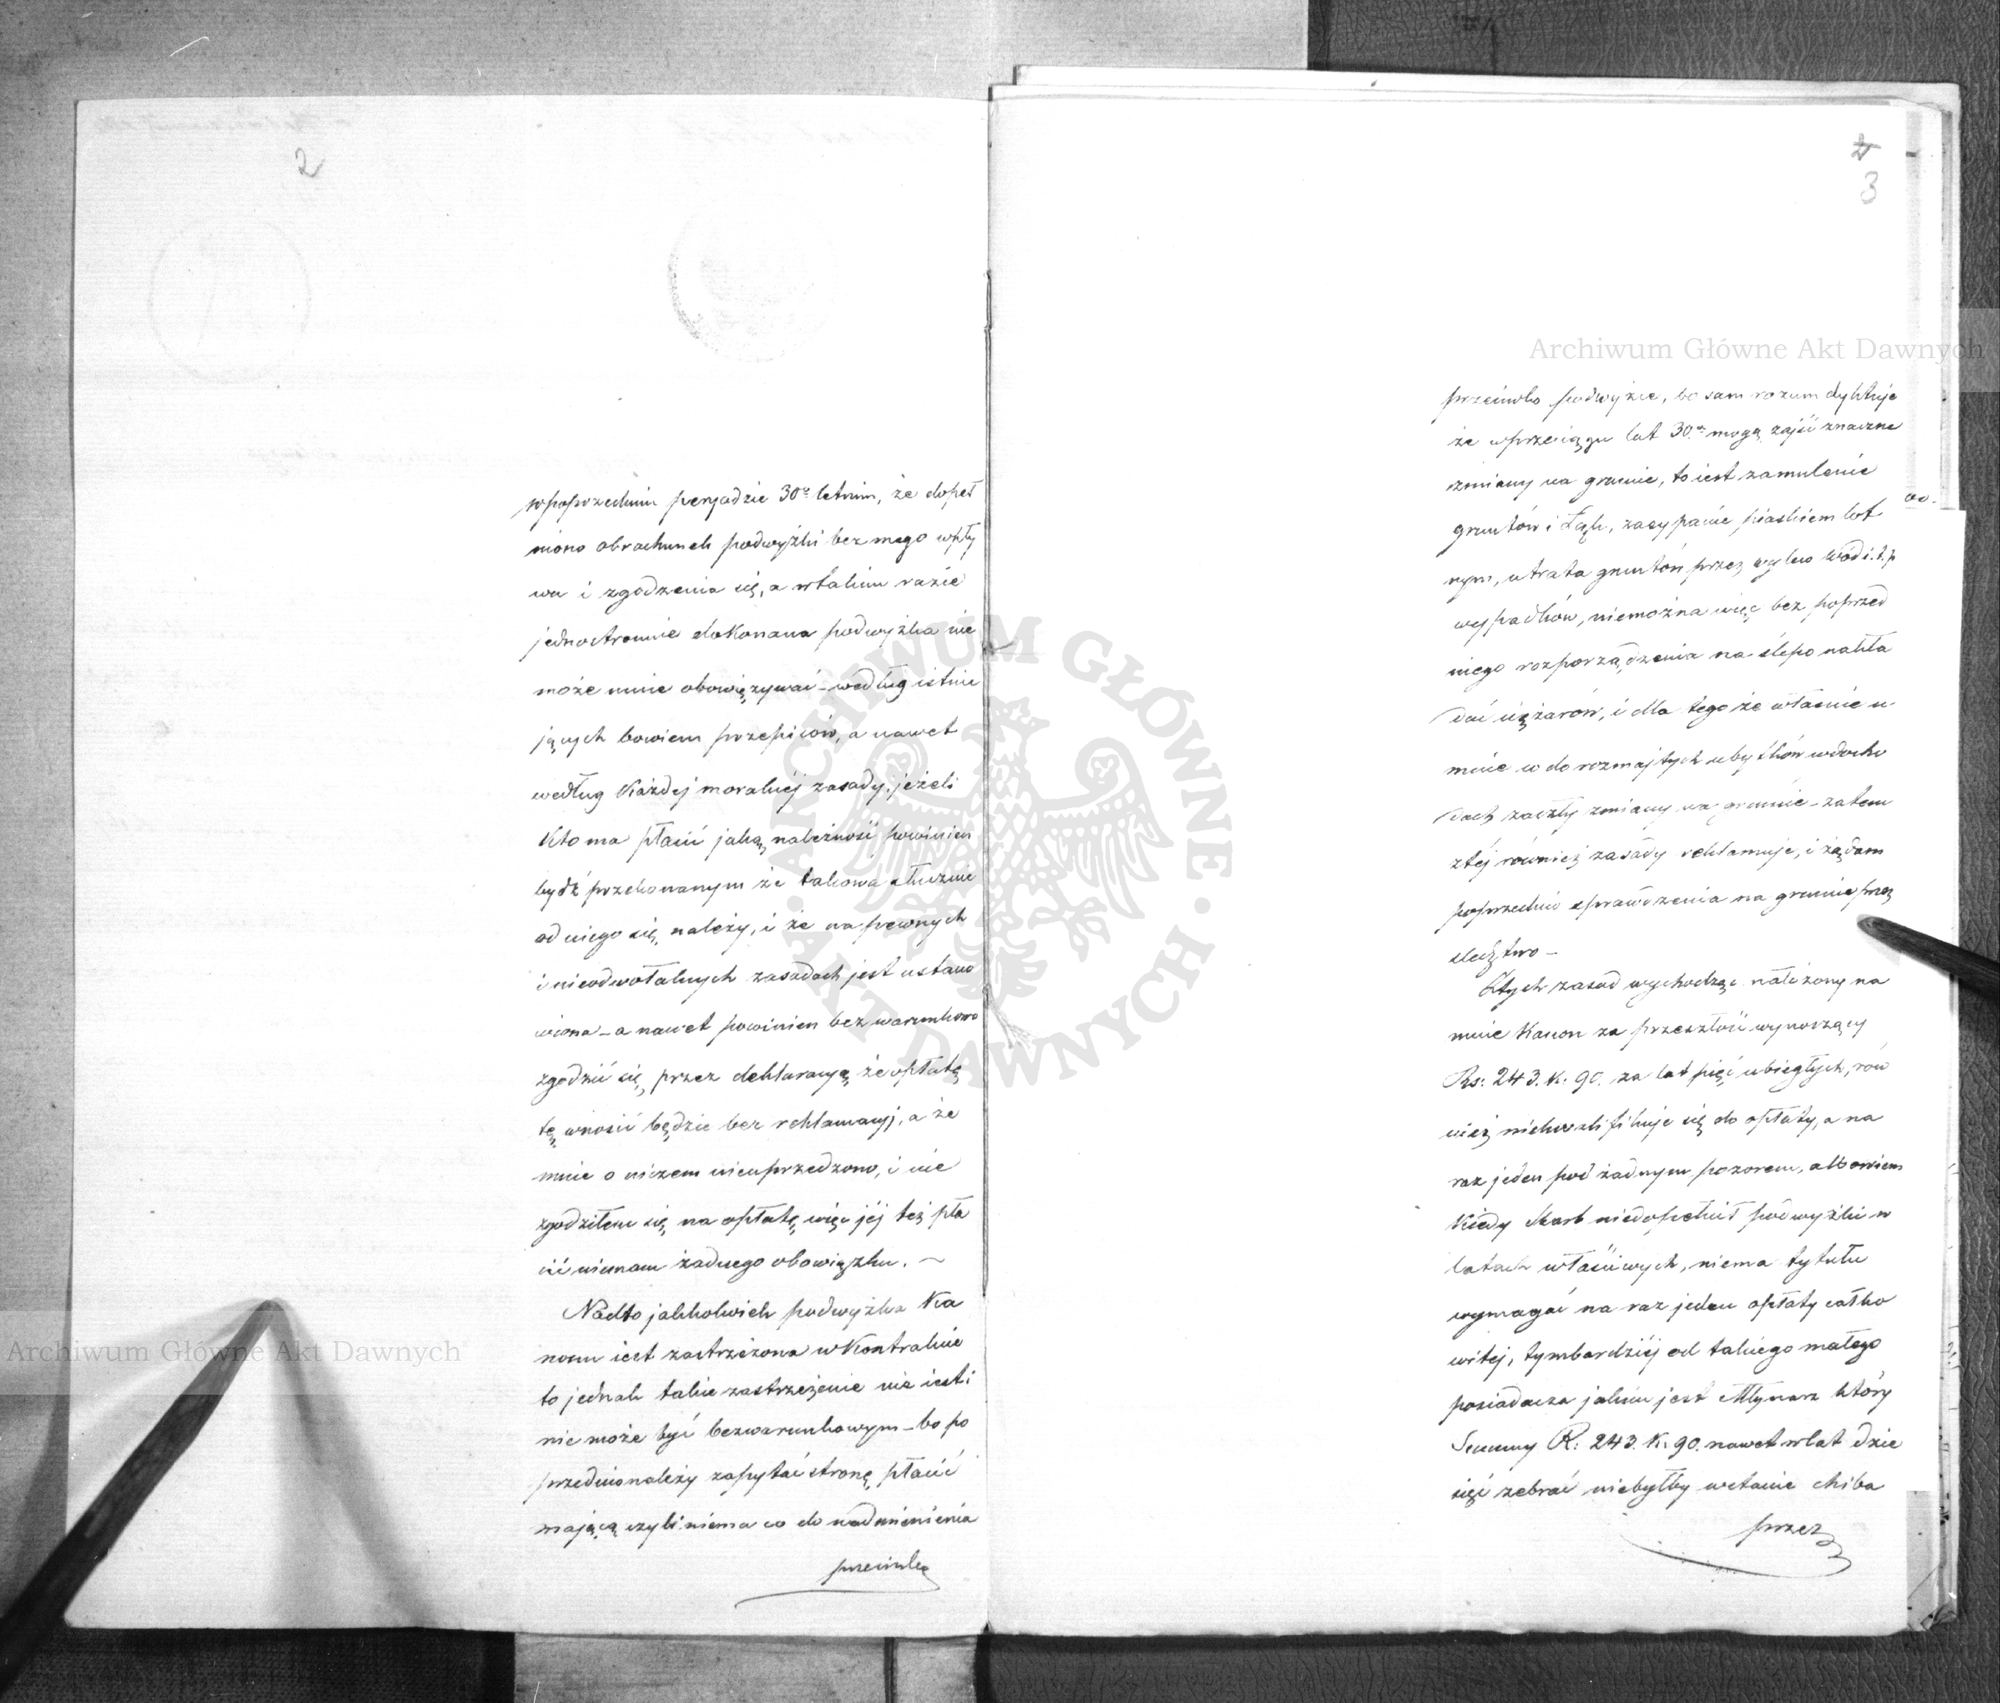 2
w poprzednim perjodzie 30º letnim, że dopeł
niono obrachunek podwyżki bez mego wpły
wu i zgodzenia się, a w takim razie
jednostronnie dokonana podwyżka nie
może mnie obowięzywać – według istnie
jących bowiem przepisów, a nawet
według każdej moralnéj zasady, jeżeli
kto ma płacić jaką należność powinien
bydź przekonanym że takowa słusznie
od niego się należy, i że na pewnych
i nieodwołalnych zasadach jest ustano
wiona – a nawet powinien bezwarunkowo
zgodzić się przez deklaracyą że opłatę
tę wnosić będzie bez reklamacyj, a że
mnie o niczem nieuprzedzono, i nie
zgodziłem się na opłatę, więc jéj też pła
cić niemam żadnego obowiązku. –
Nadto jakkolwiek podwyżka Ka
nonu iest zastrzeżona w Kontrakcie
to jednak takie zastrzeżenie nie iest i
nie może być bezwarunkowym – bo po
przednio należy zapytać stronę płacić
mającą czyli niema co do nadmienienia
przeciwko
3
przeciwko podwyżce, bo sam rozum dyktuje
że w przeciągu lat 30º mogą zajść znaczne
zmiany na gruncie, to iest zamulenie
gruntów i Łąk, zasypanie piaskiem lot
nym, utrata gruntów przez wylew wód i.t.p
wypadków, niemożna więc bez poprzed
niego rozporządzenia na ślepo nakła
dać ciężarów, i dla tego że właśnie u
mnie co do rozmajtych ubytków w docho
dach zaszły zmiany na gruncie – zatem
z téj również zasady reklamuje, i żądam
poprzednio sprawdzenia na gruncie przez
sledztwo –
Z tych zasad wychodząc nałożony na
mnie Kanon za przeszłość wynoszący
Rs: 243. K: 90. za lat pięć ubiegłych, rów
nież niekwalifikuje się do opłaty, a na
raz jeden pod żadnym pozorem, albowiem
kiedy Skarb niedopełnił podwyżki w
latach właściwych, niema tytułu
wymagać na raz jeden opłaty całko
witej, tymbardziéj od takiego małego
posiadacza jakim jest Młynarz który
Summy R: 243. K: 90. nawet w lat dzie
sięć zebrać niebyłby wstanie chiba
przez
Archiwum Główne Akt Dawnych
Archiwum Główne Akt Dawnych
ARCHIWUM GŁÓWNE AKT DAWNYCH